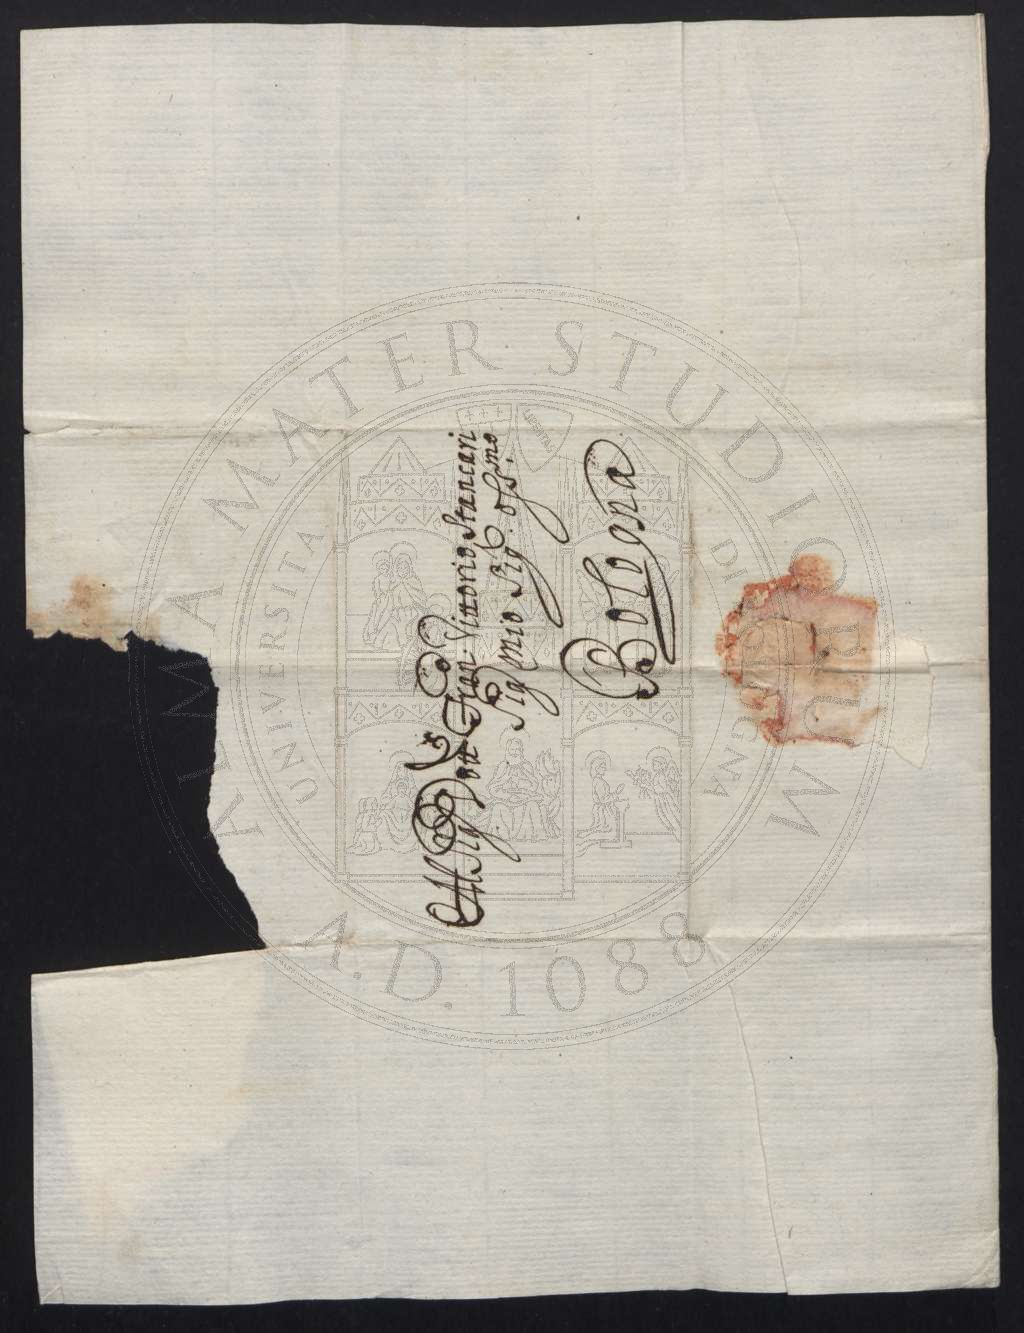 All Sig.r Dott Gian Vittorio Stancari
Sig mio Sig. oss.mo
Bologna
ALMA MATER STUDIORUM
A.D. 1088
UNIVERSITA
DI BOLOGNA